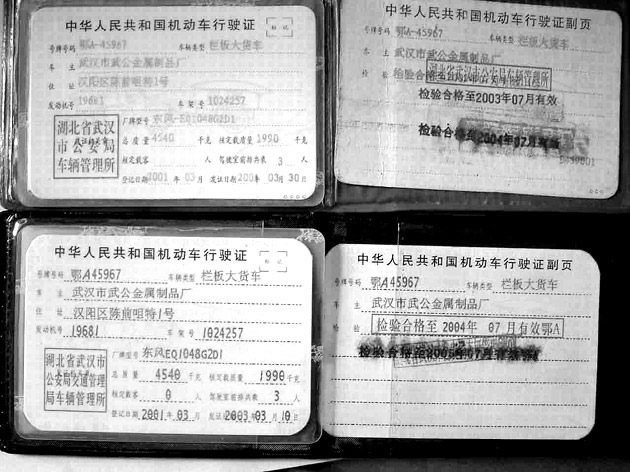 中华人民共和国机动车行驶证
号牌号码 鄂A-45967 车辆类型 栏板大货车
车主 武汉市武公金属制品厂
住址 汉阳区陈前咀特1号
发动机号 19681 车架号 1024257
湖北省武汉
市公安局
车辆管理所
厂牌型号 东风-EQ1048G2D1
总质量 4540 千克 核定载质量 1990 千克
核定载客 人 驾驶室前排共乘 3 人
登记日期 2001 年 03 月 发证日期 200 年 03 月 30 日
中华人民共和国机动车行驶证副页
号牌号码 鄂A-45967 车辆类型 栏板大货车
车主 武汉市武公金属制品厂
检验
检验合格至2003年07月有效
检验合格至2004年07月有效
中华人民共和国机动车行驶证
号牌号码 鄂A45967 车辆类型 栏板大货车
车主 武汉市武公金属制品厂
住址 汉阳区陈前咀特1号
发动机号 19681 车架号 1024257
湖北省武汉市
公安局交通管理
局车辆管理所
厂牌型号 东风EQ1048G2D1
总质量 4540 千克 核定载质量 1990 千克
核定载客 0 人 驾驶室前排共乘 3 人
登记日期 2001 年 03 月 发证日期 2003 年 03 月 10 日
中华人民共和国机动车行驶证副页
号牌号码 鄂A45967 车辆类型 栏板大货车
车主 武汉市武公金属制品厂
检验 检验合格至 2004年 07 月有效鄂A
检验合格至2005年07月有效鄂A